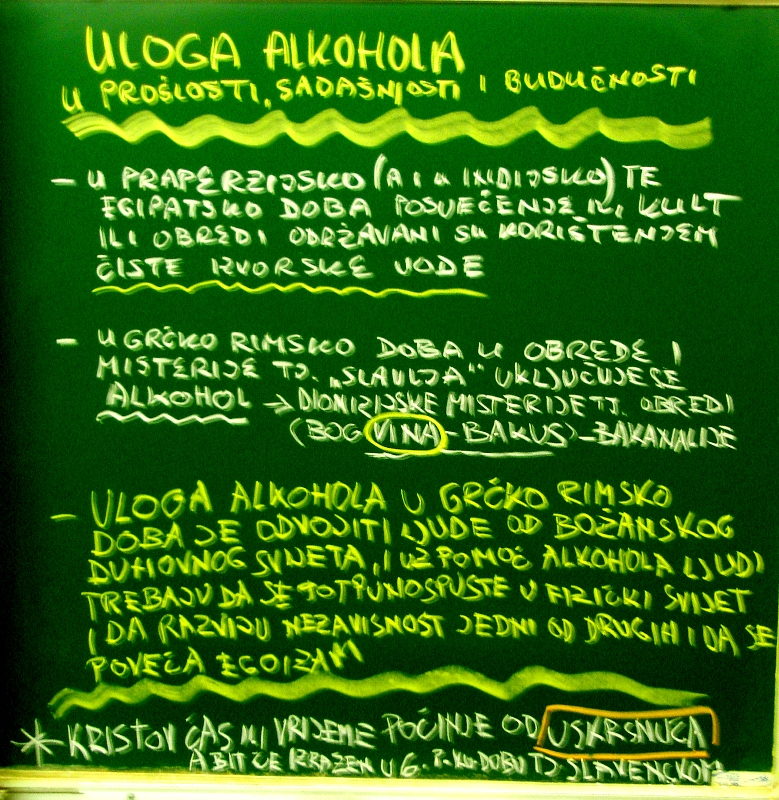 ULOGA ALKOHOLA
U PROŠLOSTI, SADAŠNJOSTI I BUDUĆNOSTI
- U PRAPERZIJSKO (A I U INDIJSKO) TE
EGIPATSKO DOBA POSVEĆENJE ILI KULT
ILI OBREDI ODRŽAVANI SU KORIŠTENJEM
ČISTE IZVORSKE VODE
- U GRČKO RIMSKO DOBA U OBREDE I
MISTERIJE TJ. „SLAVLJA" UKLJUČUJE SE
ALKOHOL → DIONIZIJSKE MISTERIJE TJ. OBREDI
(BOG VINA - BAKUS) - BAKANALIJE
- ULOGA ALKOHOLA U GRČKO RIMSKO
DOBA JE ODVOJITI LJUDE OD BOŽANSKOG
DUHOVNOG SVIJETA, I UZ POMOĆ ALKOHOLA LJUDI
TREBAJU DA SE POTPUNO SPUSTE U FIZIČKI SVIJET
I DA RAZVIJU NEZAVISNOST JEDNI OD DRUGIH I DA SE
POVEĆA EGOIZAM
* KRISTOV ČAS ILI VRIJEME POČINJE OD USKRSNUĆA
A BIT ĆE IZRAŽEN U 6. P. KU. DOBU TJ SLAVENSKOM